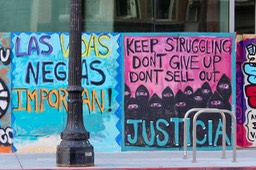 LAS VIDAS
NEGRAS
IMPORTAN!
KEEP STRUGGLING
DON'T GIVE UP
DONT SELL OUT
JUSTICIA